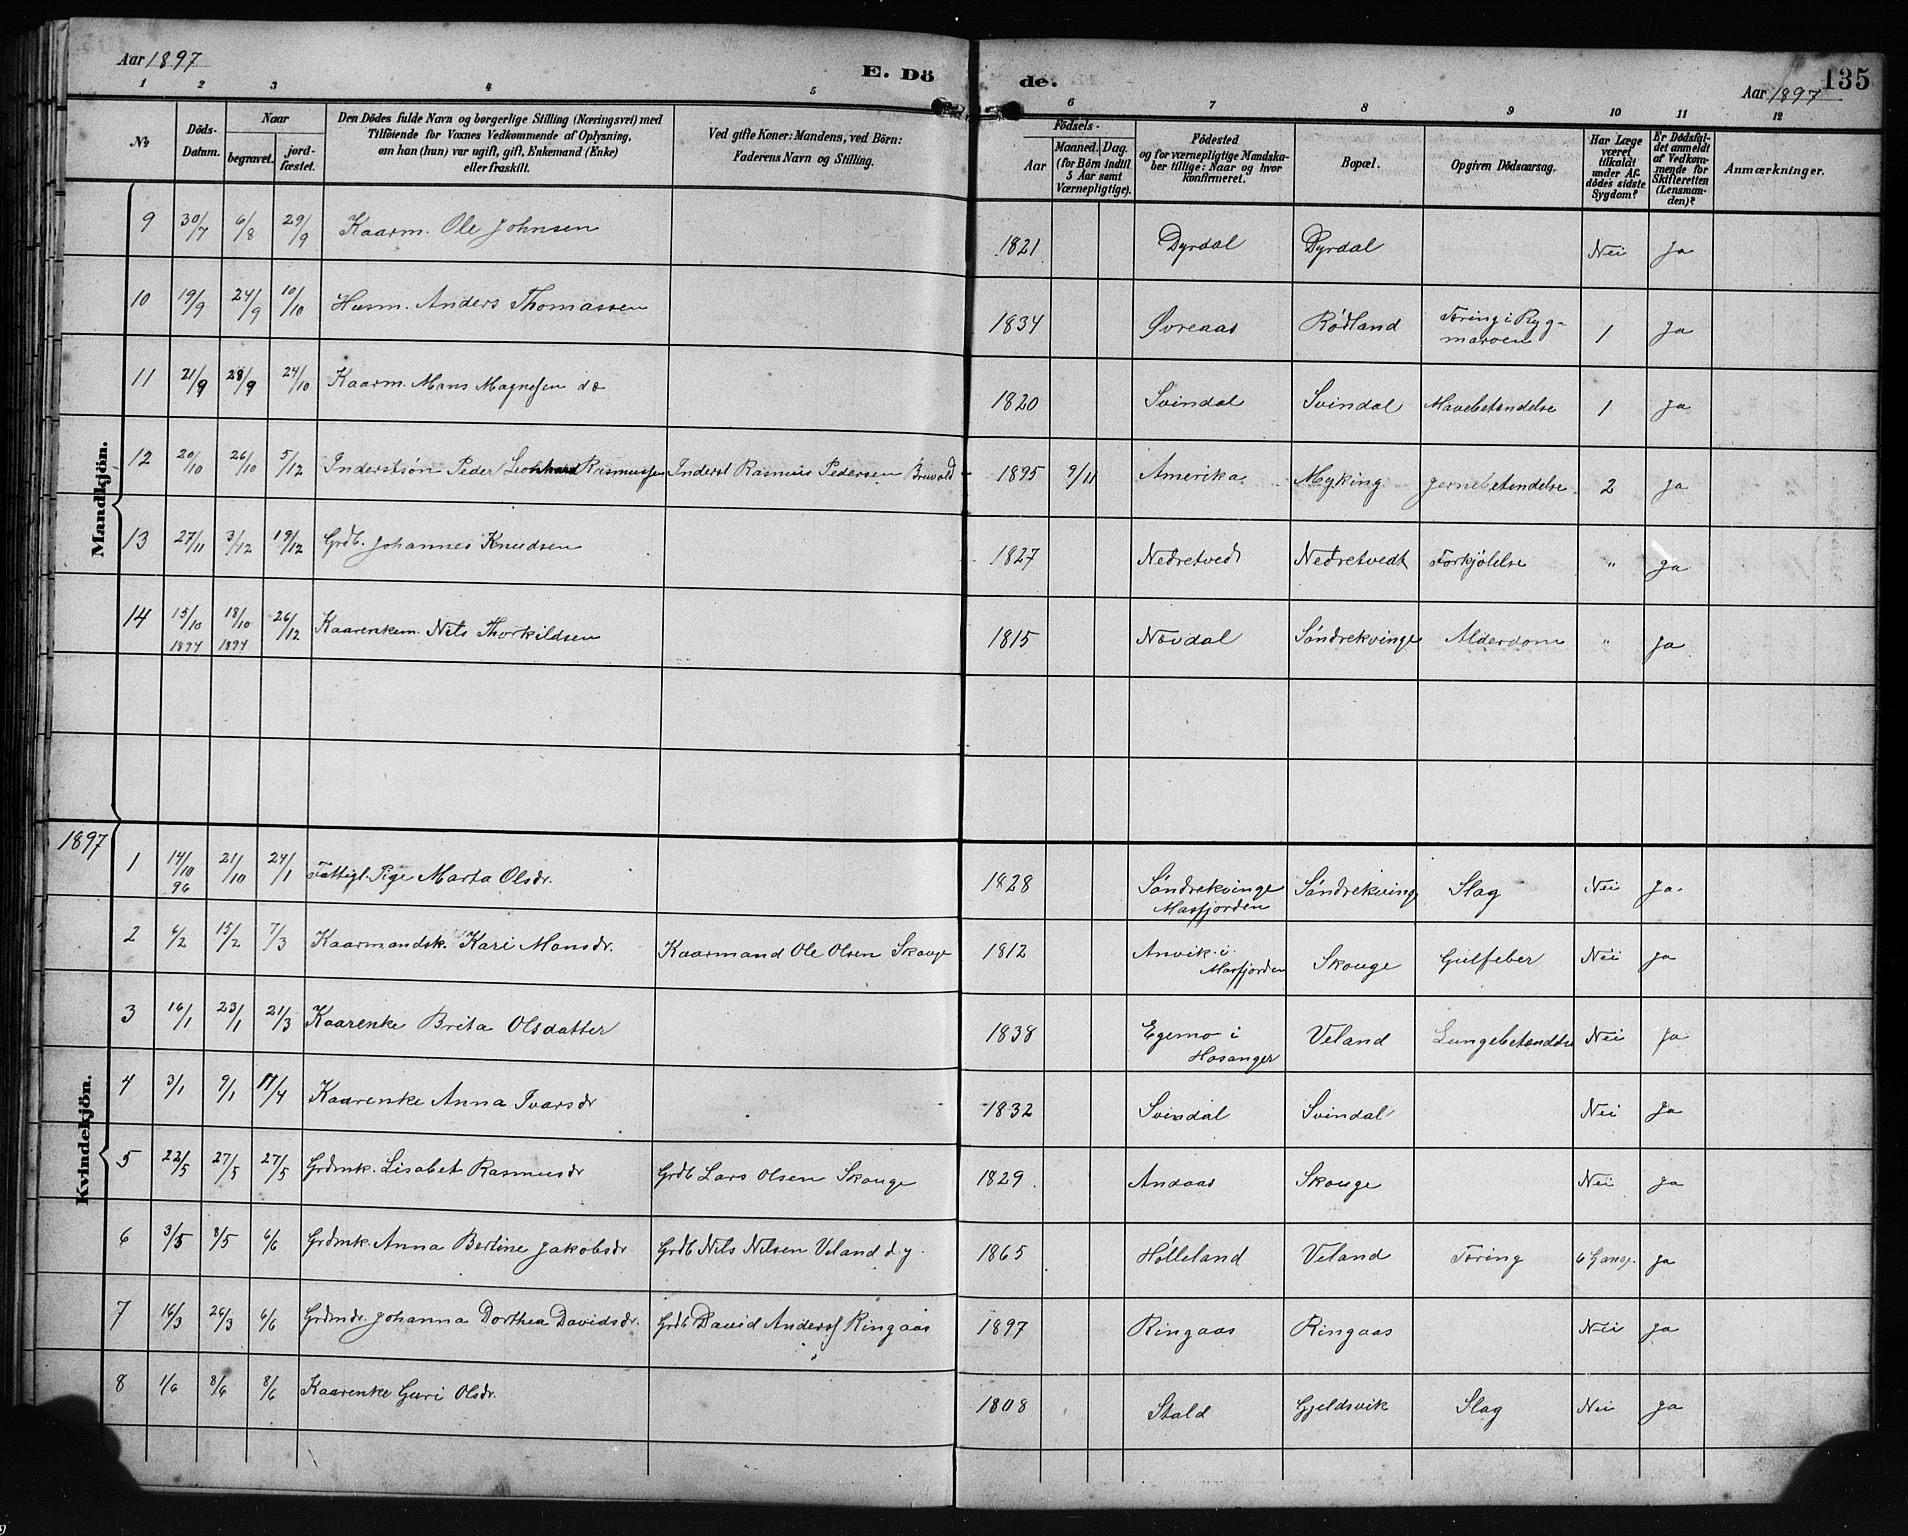 Aar 1897
E. Dö
de.
Aar 1897
135
1 2 3 4 5 6 7 8 9 10 11 12
№
Döds-Datum.
Naar
begravet.
jord-fæstet.
Den Dödes fulde Navn og borgerlige Stilling (Næringsvei) med
Tilföiende for Voxnes Vedkommende af Oplysning,
om han (hun) var ugift, gift, Enkemand (Enke)
eller fraskilt.
Ved gifte Koner: Mandens, ved Börn:
Faderens Navn og Stilling.
Födsels-
Aar
Maaned. Dag.
(for Börn indtil
5 Aar samt
Værnepligtige).
Födested
og for værnepligtige Mandska-
ber tillige: Naar og hvor
konfirmeret.
Bopæl.
Opgiven Dödsaarsag.
Har Læge
været
tilkaldt
under Af-
dödes sidste
Sygdom?
Er Dödsfal-
det anmeldt
af Vedkom-
mende for
Skifteretten
(Lensman-
den)?
Anmærkninger.
Mandkjön.
9 30/7 6/8 29/9 Kaarm. Ole Johnsen 1821 Dyrdal Dyrdal Nei Ja
10 19/9 24/9 10/10 Husm. Anders Thomassen 1834 Øvreaas Rødland Tæring i Ryg-
marven 1 Ja
11 21/9 28/9 24/10 Kaarm. Mons Magnesen do 1820 Svindal Svindal Mavebetændelse 1 Ja
12 20/10 26/10 5/12 Inderstsøn Peder Leonhard Rasmussen Inderst Rasmus Pedersen Bruvold 1895 9/11 Amerika Myking Hjernebetændelse 2 Ja
13 27/11 3/12 19/12 Grdb. Johannes Knudsen 1827 Nedretvedt Nedretvedt Forkjølelse " Ja
14 15/10 1897 18/10 1897 26/12 Kaarenkem. Nils Thorkildsen 1815 Novdal Søndrekvinge Alderdom " Ja
1897
Kvindekjön.
1 14/10 96 21/10 24/1 Fattigl. Pige Marta Olsdr. 1828 Søndrekvinge
Masfjorden Søndrekvinge Slag Nei Ja.
2 6/2 15/2 7/3 Kaarmandsk. Kari Monsdr. Kaarmand Ole Olsen Skouge 1812 Anvik i
Masfjorden Skouge Gulfeber Nei Ja
3 16/1 23/1 21/3 Kaarenke Brita Olsdatter 1838 Egemo i
Hosanger Veland Lungebetændelse Nei Ja
4 3/1 9/1 11/4 Kaarenke Anna Ivarsdr 1832 Svindal Svindal Nei Ja
5 22/5 27/5 27/5 Grdmk. Lisabet Rasmusdr Grdb Lars Olsen Skouge 1829 Andaas Skouge Nei Ja
6 3/5 8/5 6/6 Grdmk. Anna Bertine Jakobsdr Grdb Nils Nilsen Veland d.y. 1865 Hølleland Veland Tæring 6 Gange. Ja
7 16/3 26/3 6/6 Grdmdr. Johanna Dorthea Davidsdr. Grdb David Anderss Ringaas 1897 Ringaas Ringaas Nei Ja
8 1/6 8/6 8/6 Kaarenke Guri Olsdr. 1808 Stald Gjeldsvik Slag Nei Ja